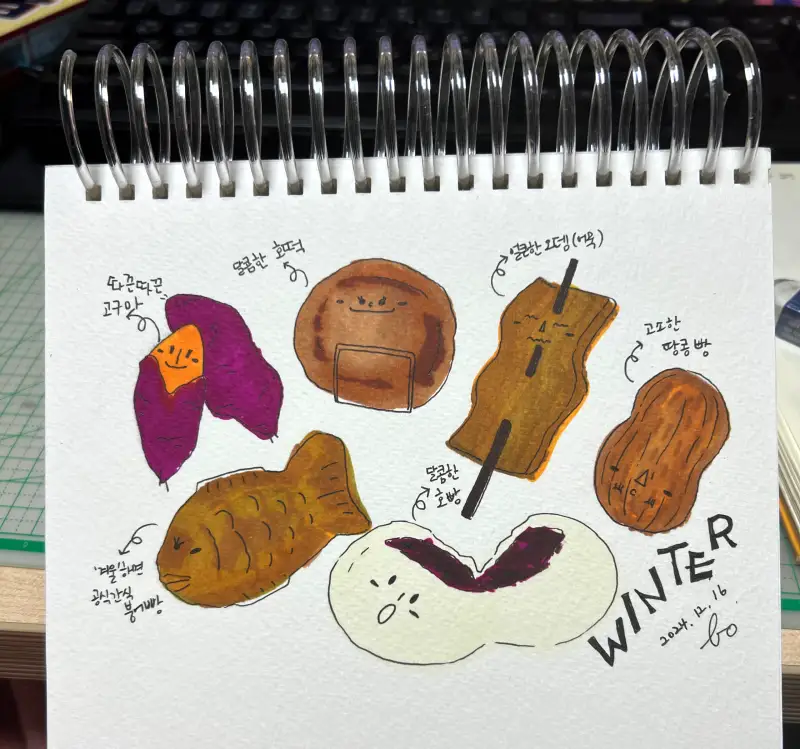 따끈따끈
고구마
달콤한 호떡
얼큰한 오뎅 (어묵)
고소한
땅콩빵
달콤한
호빵
'겨울'하면
공식간식
붕어빵
WINTER
2024. 12. 16.
bo